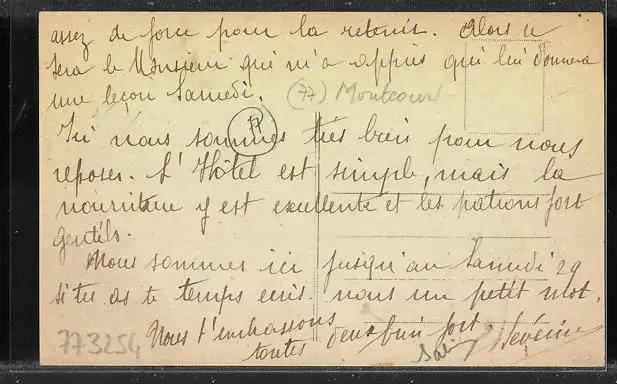 assez de force pour la retenir. Alors ce
sera le Monsieur qui m'a appris qui lui donnera
une leçon Samedi.
(77) Montcourt
77
Ici nous sommes très bien pour nous
reposer. L'Hôtel est simple, mais la
nourriture y est excellente et les patrons fort
gentils.
Nous sommes ici jusqu'au Samedi 29
si tu as le temps ecris nous un petit mot.
Nous t'embrassons
toutes deux bien fort Séverine
773254